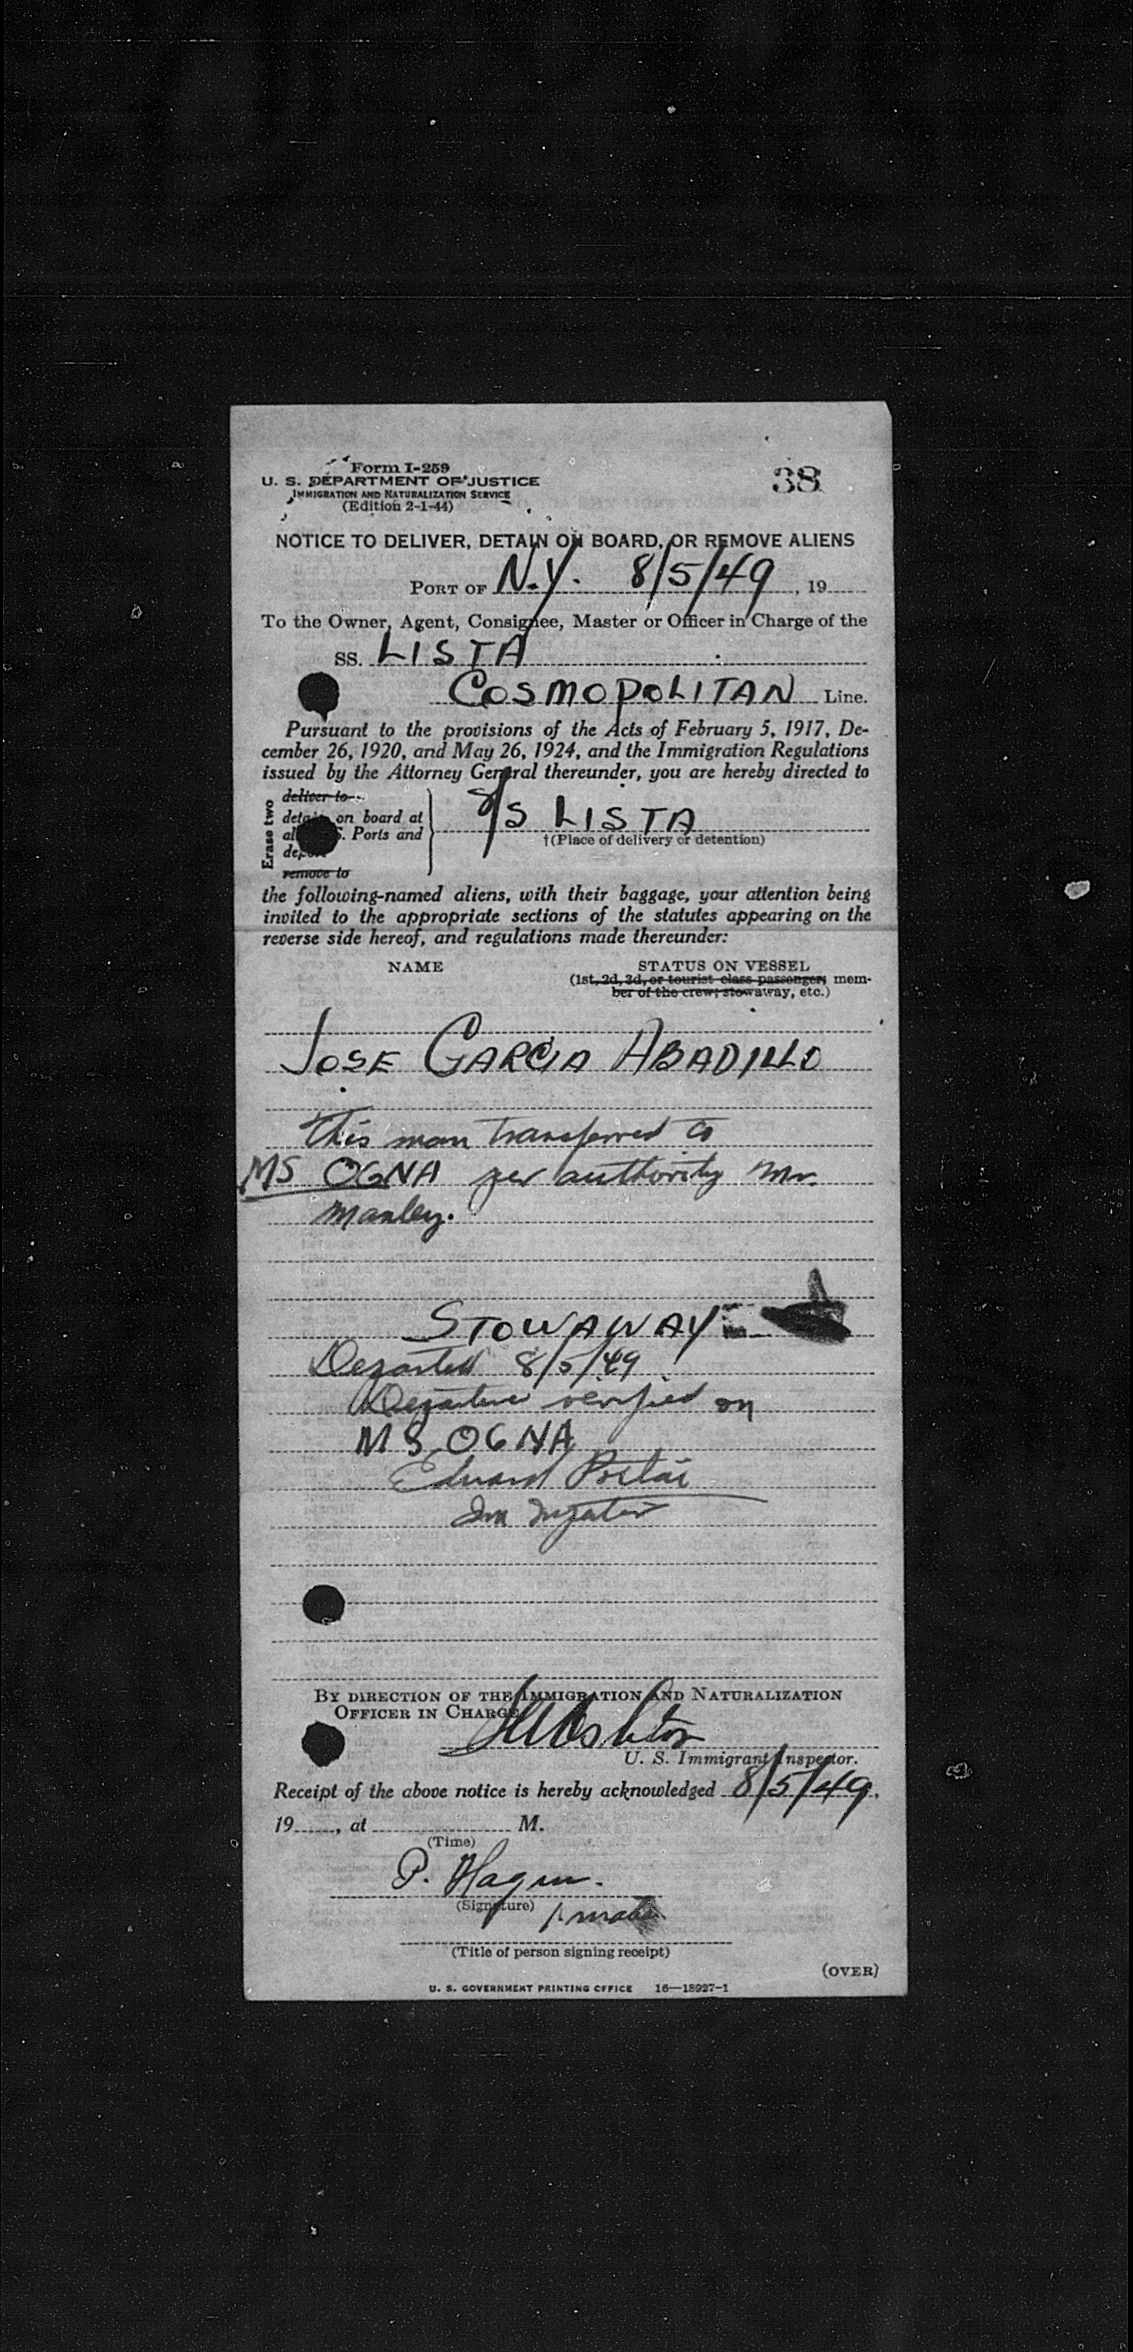 Form I-259
38
U. S. DEPARTMENT OF JUSTICE
IMMIGRATION AND NATURALIZATION SERVICE
(Edition 2-1-44)
NOTICE TO DELIVER, DETAIN ON BOARD, OR REMOVE ALIENS
PORT OF N.Y. 8/5/49, 19
To the Owner, Agent, Consignee, Master or Officer in Charge of the
SS. LISTA
COSMOPOLITAN Line.
Pursuant to the provisions of the Acts of February 5, 1917, De-
cember 26, 1920, and May 26, 1924, and the Immigration Regulations
issued by the Attorney General thereunder, you are hereby directed to
Erase two
deliver to
detain on board at
Ports and
remove to
S/S LISTA
†(Place of delivery or detention)
the following-named aliens, with their baggage, your attention being
invited to the appropriate sections of the statutes appearing on the
reverse side hereof, and regulations made thereunder:
NAME STATUS ON VESSEL
(1st, 2d, 3d, or tourist class passenger; mem-
ber of the crew; stowaway, etc.)
JOSE GARCIA ABADILLO
This man transferred to
MS OGNA per authority Mr.
Manley.
STOWAWAY
Departed 8/5/49
Departure verified on
MS OGNA
Edward
BY DIRECTION OF THE IMMIGRATION AND NATURALIZATION
OFFICER IN CHARGE
U. S. Immigrant Inspector.
Receipt of the above notice is hereby acknowledged 8/5/49,
19, at M.
(Time)
P. Hagen.
(Signature)
(Title of person signing receipt)
(OVER)
U. S. GOVERNMENT PRINTING OFFICE 16—18927-1